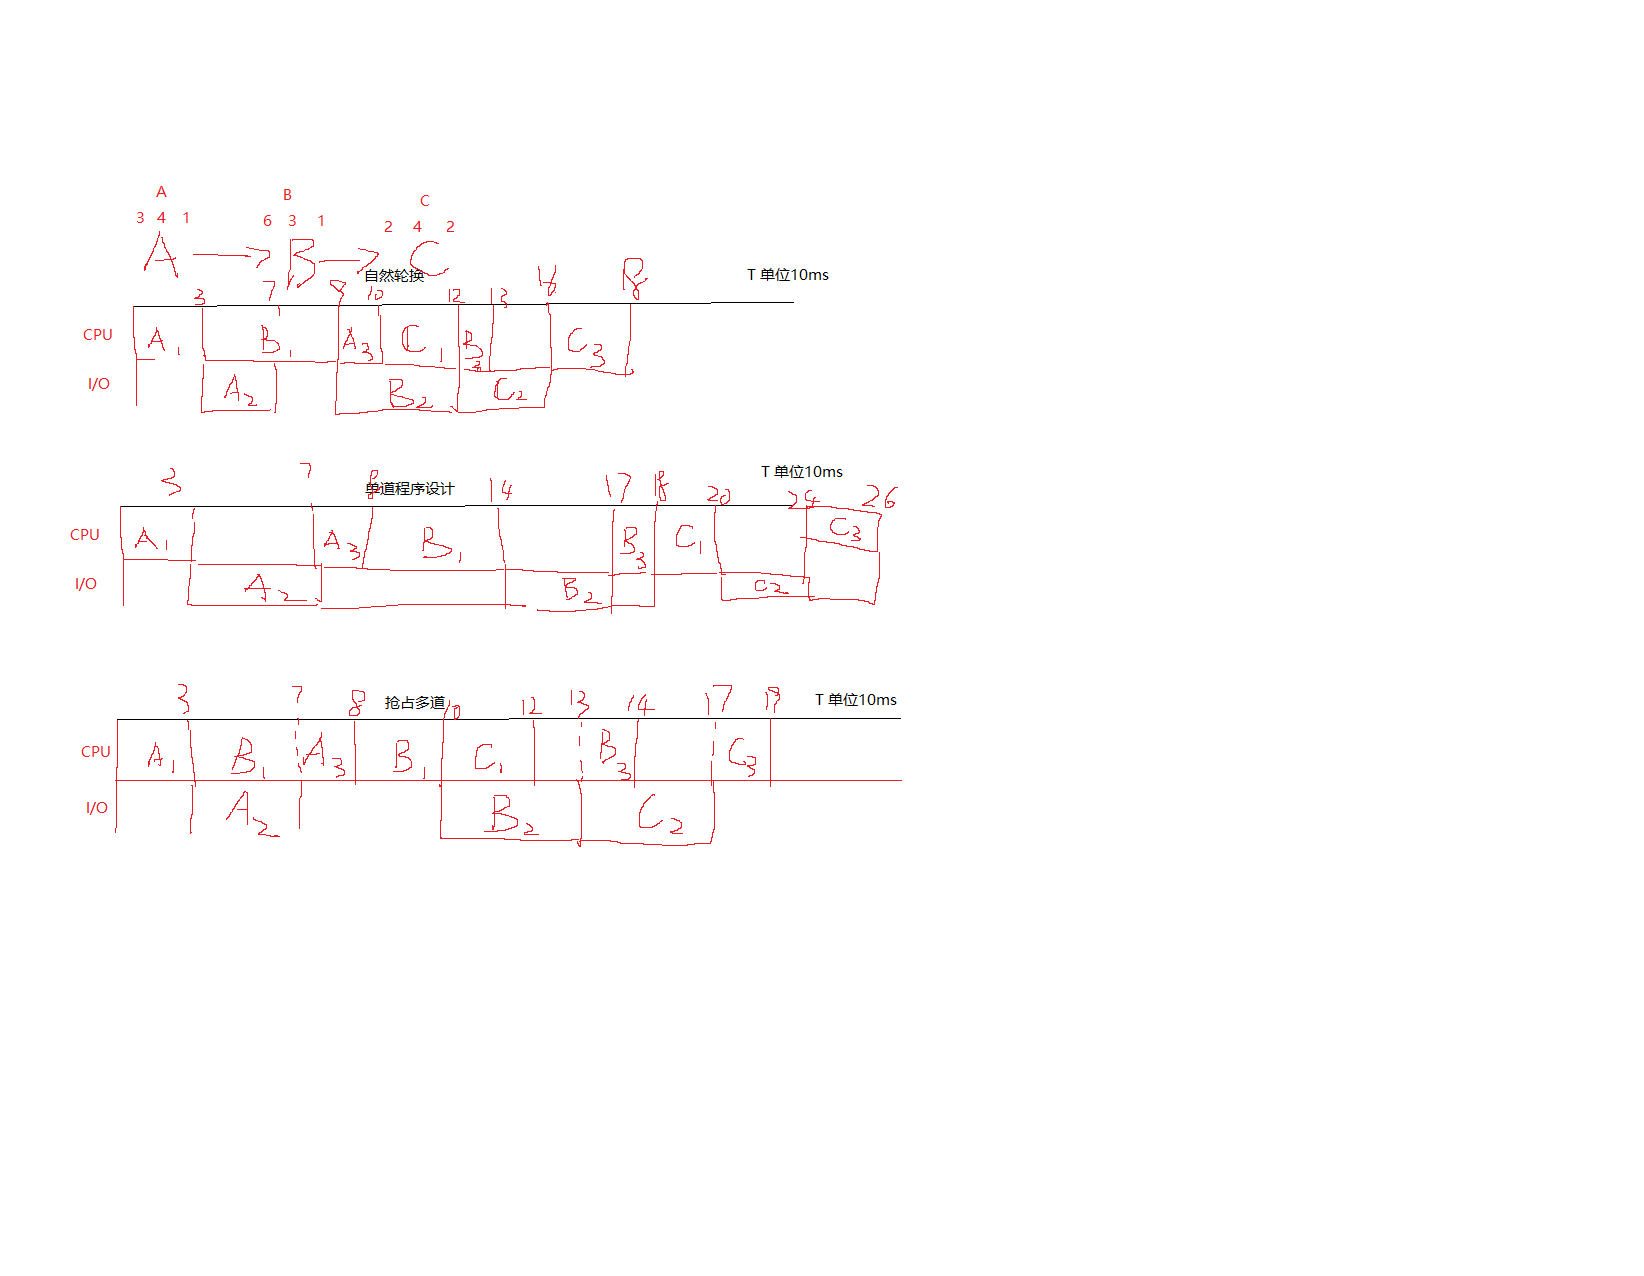 A B C
3 4 1 6 3 1 2 4 2
A B C
自然轮换 T 单位10ms
3 7 9 10 12 13 16 18
CPU A1 B1 A3 C1 B3 C3
I/O A2 B2 C2
T 单位10ms
单道程序设计
3 7 8 14 17 18 20 24 26
CPU A1 A3 B1 B3 C1 C3
I/O A2 B2 C2
抢占多道 T 单位10ms
3 7 8 10 12 13 14 17 19
CPU A1 B1 A3 B1 C1 B3 C3
I/O A2 B2 C2